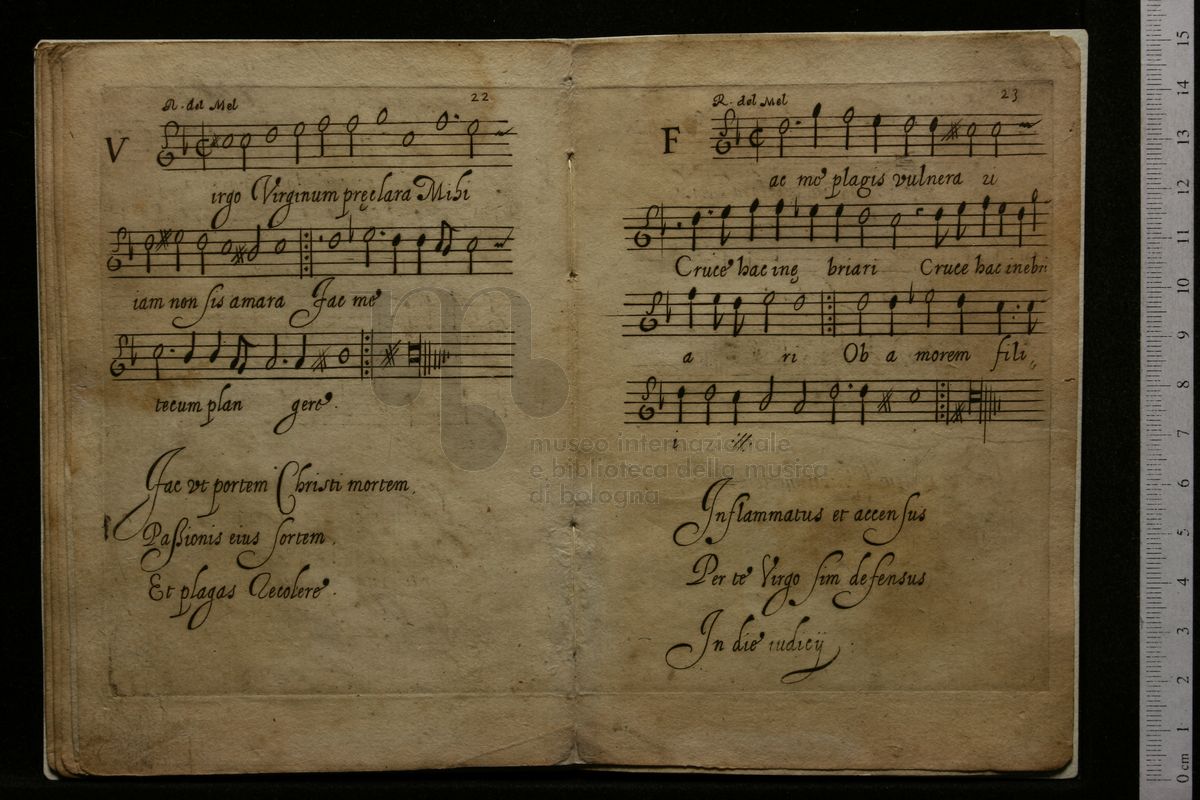 R. del Mel
22
V
irgo Virginum pręclara Mihi
iam non sis amara Fac me
tecum plan gere.
Fac vt portem Christi mortem,
Passionis eius sortem,
Et plagas Recolere.
R. del Mel
23
F
ac me plagis vulnera u
Cruce hac inę briari Cruce hac inebri
a ri Ob a morem fili
i .//.
Inflammatus et accensus
Per te Virgo sim defensus
In die iudicij.
museo internazionale
e biblioteca della musica
di bologna
15
14
13
12
11
10
9
8
7
6
5
4
3
2
1
0 cm